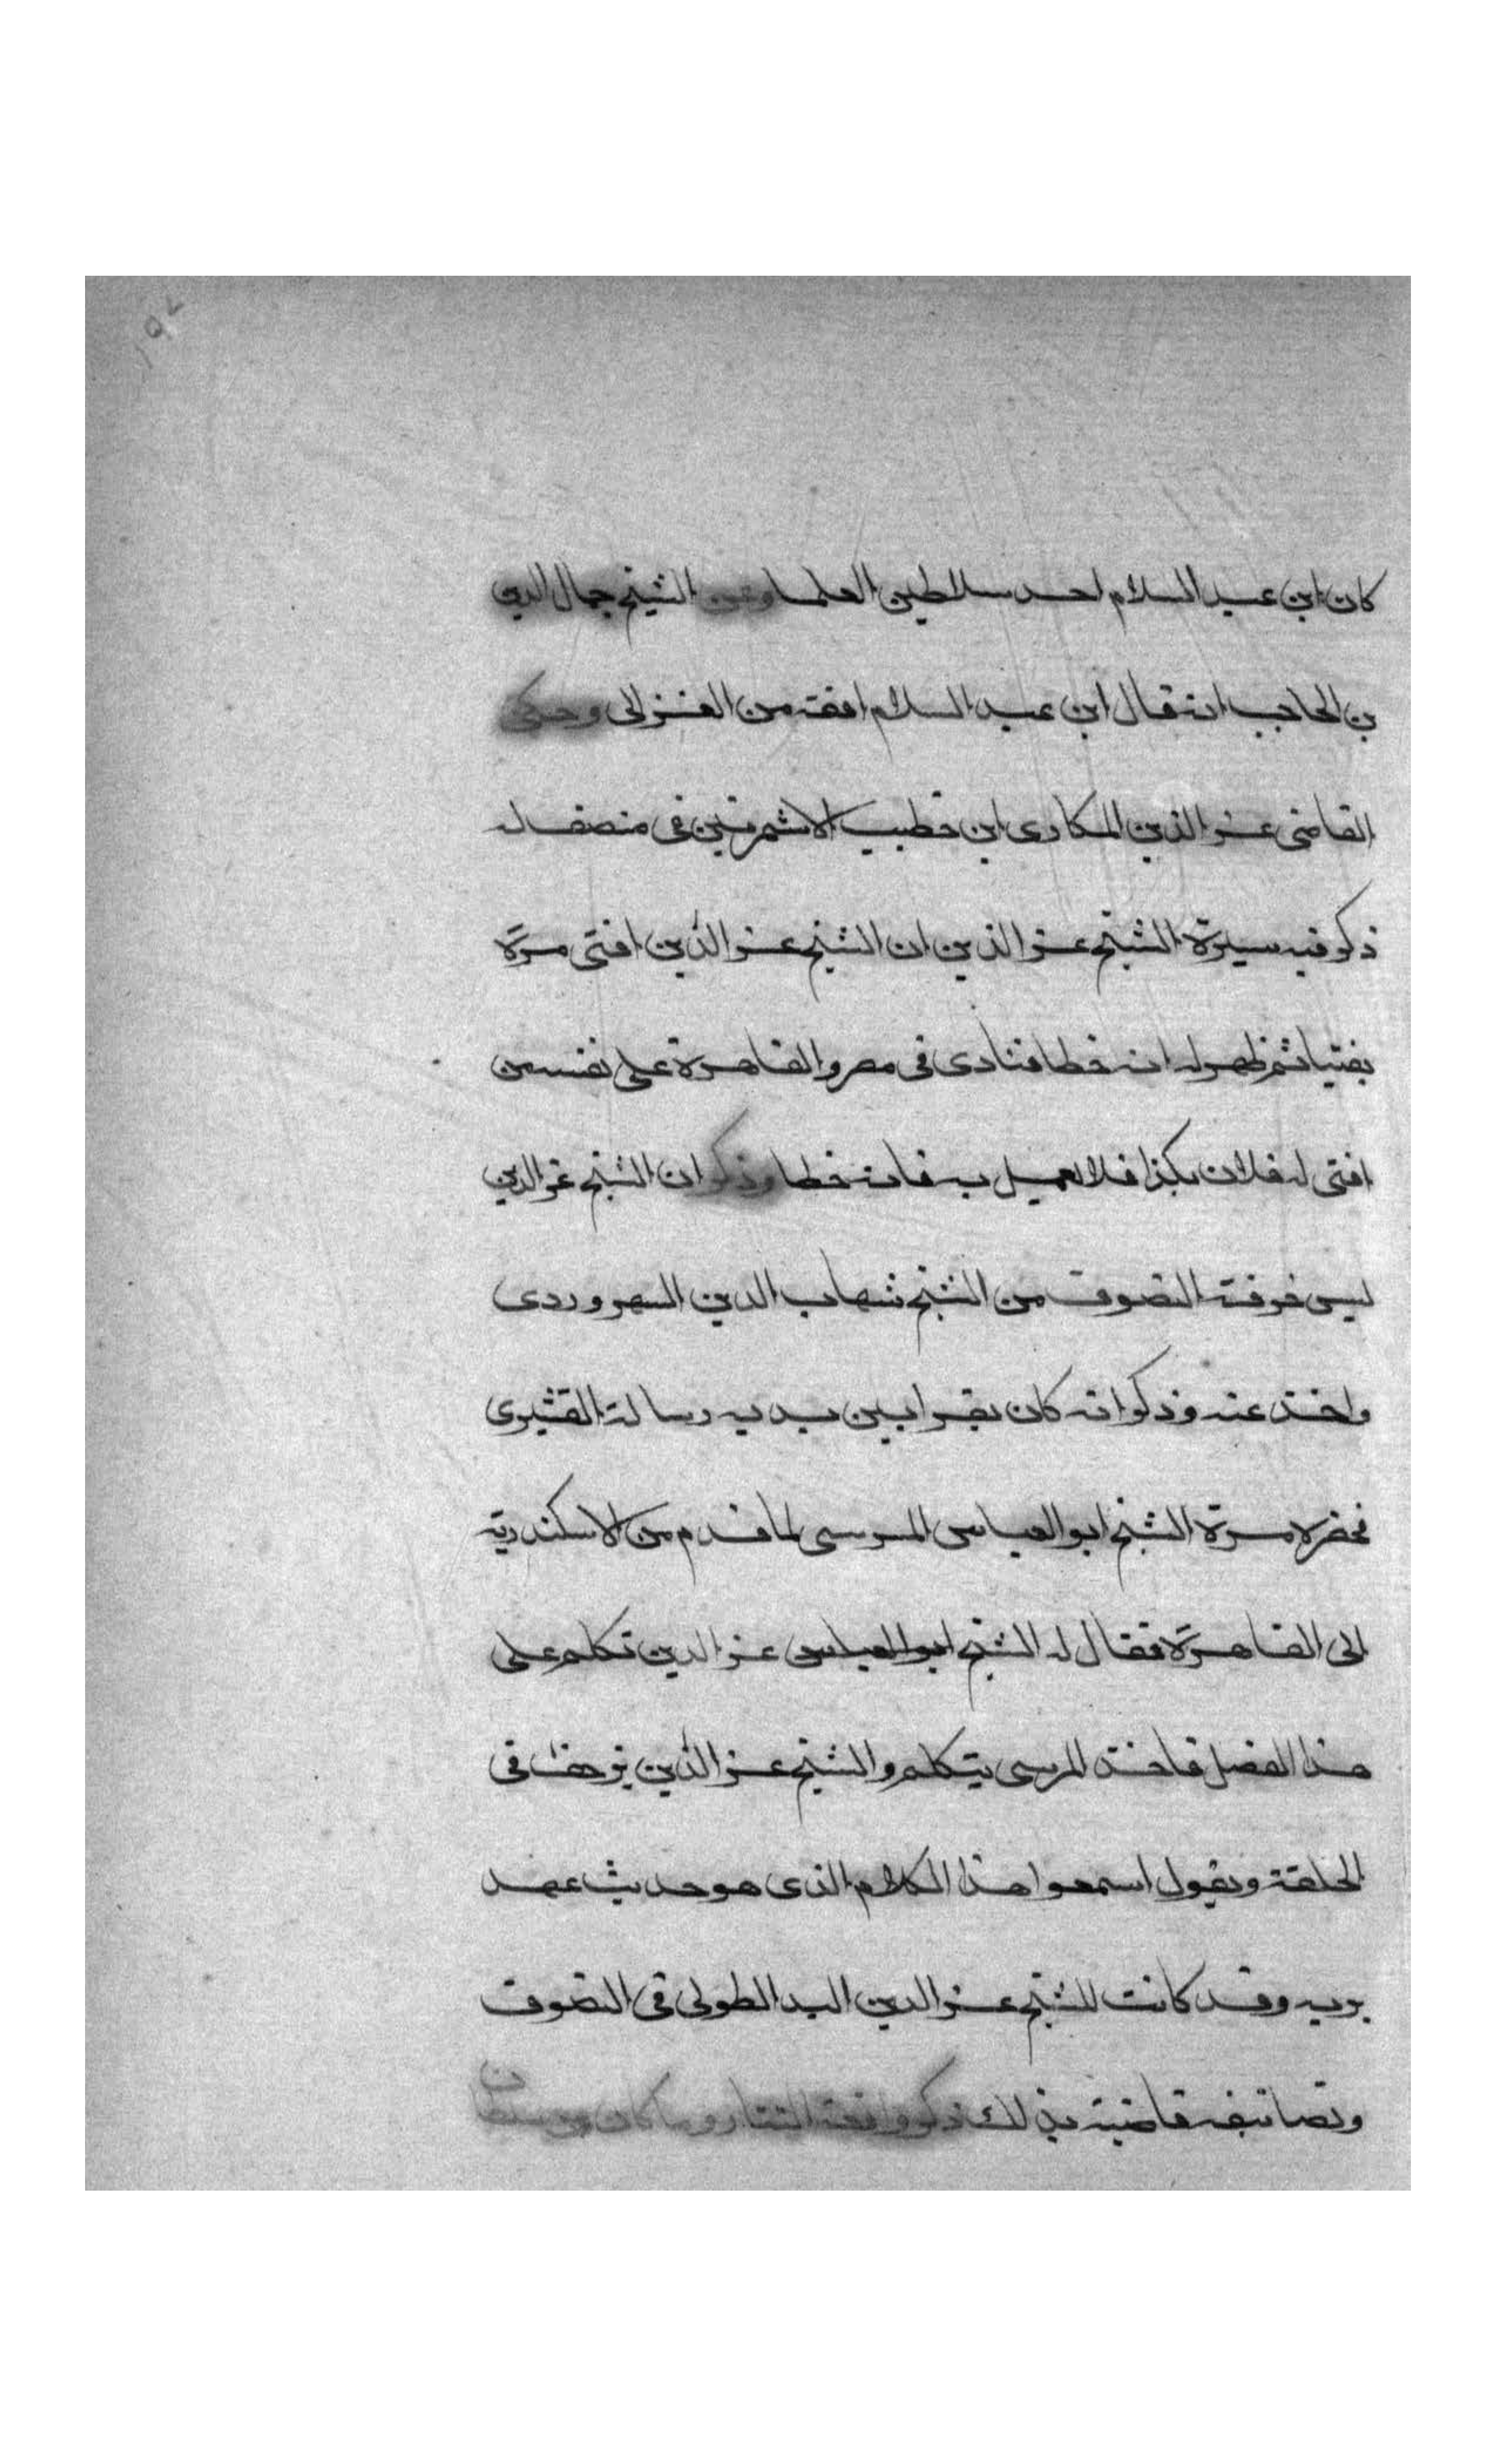 ١٩٢
كان ابن عبد السلام احد سلاطين العلما وعن الشيخ جمال الدين
بن الحاجب انه قال ابن عبد السلام افقه من الغزالى وحكى
القاضى عز الدين الهكارى ابن خطيب الاشمونين فى مصنف له
ذكر فيه سيرة الشيخ عز الدين ان الشيخ عز الدين افتى مرة
بفتيا ثم ظهر له انه خطا فنادى فى مصر والقاهرة على نفسه من
افتى له فلان بكذا فلا يعمل به فانه خطا وذكر ان الشيخ عز الدين
لبس خرقة التصوف من الشيخ شهاب الدين السهروردى
واخذ عنه وذكر انه كان يقرا بين يديه رسالة القشيرى
فحضره مرة الشيخ ابو العباس المرسى لما قدم من الاسكندرية
الى القاهرة فقال له الشيخ ابو العباس عز الدين تكلم على
هذا الفصل فاخذ المرسى يتكلم والشيخ عز الدين يزحف فى
الحلقة ويقول اسمعوا هذا الكلام الذى هو حديث عهد
بربه وقد كانت للشيخ عز الدين اليد الطولى فى التصوف
وتصانيفه قاضية بذلك ذكر واقعة التتار وما كان من سلطان